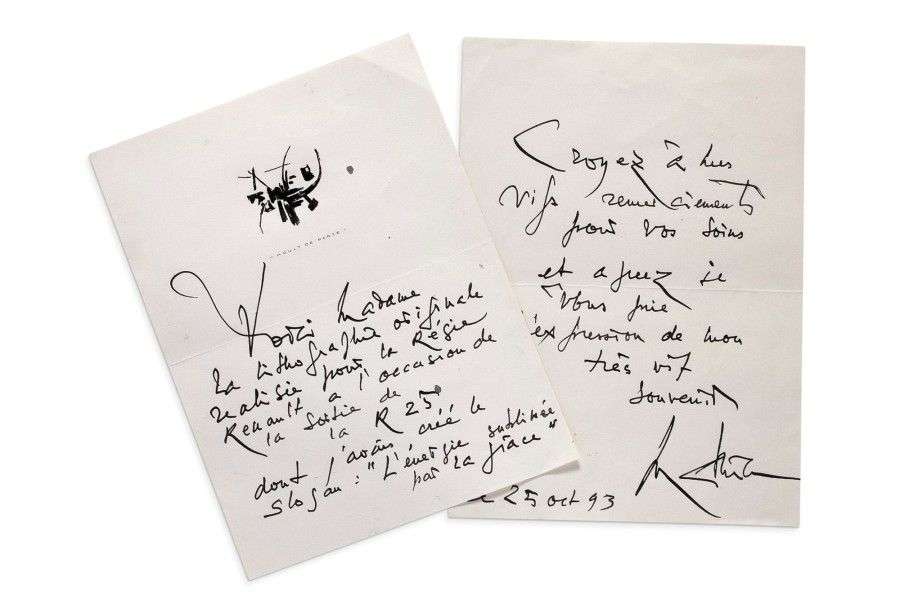 MOULT DE PLATE
Voici Madame
la lithographie originale
realisée pour la Régie
Renault a l'occasion de
la sortie de
la R 25
dont j'avais créé le
slogan : "L'énergie sublimée
par la grâce"
Croyez à mes
vifs remerciements
pour vos soins
et agreez je
vous prie
l'expression de mon
très vif
souvenir
Mathieu
le 25 oct 93